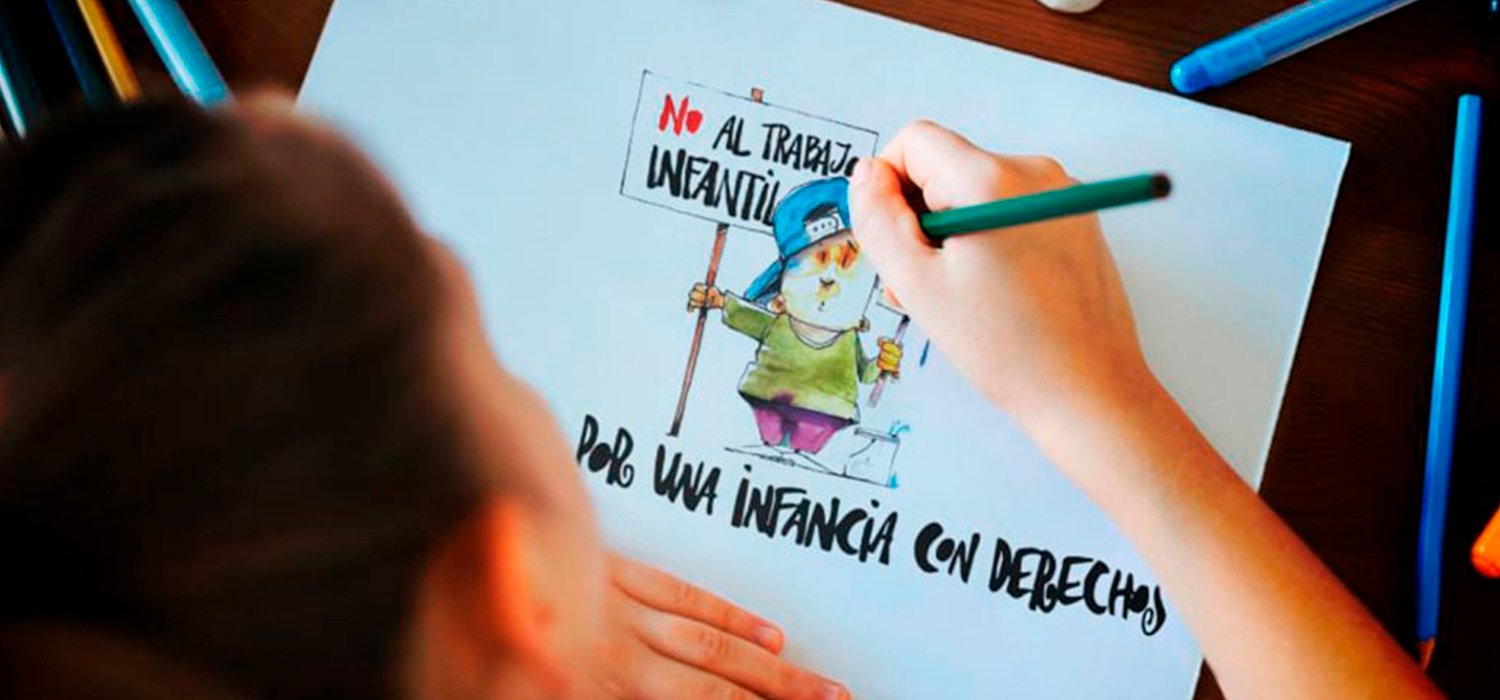 No AL TRABAJo
INFANTIL
POR UNA INFANCIA CON DERECHOS